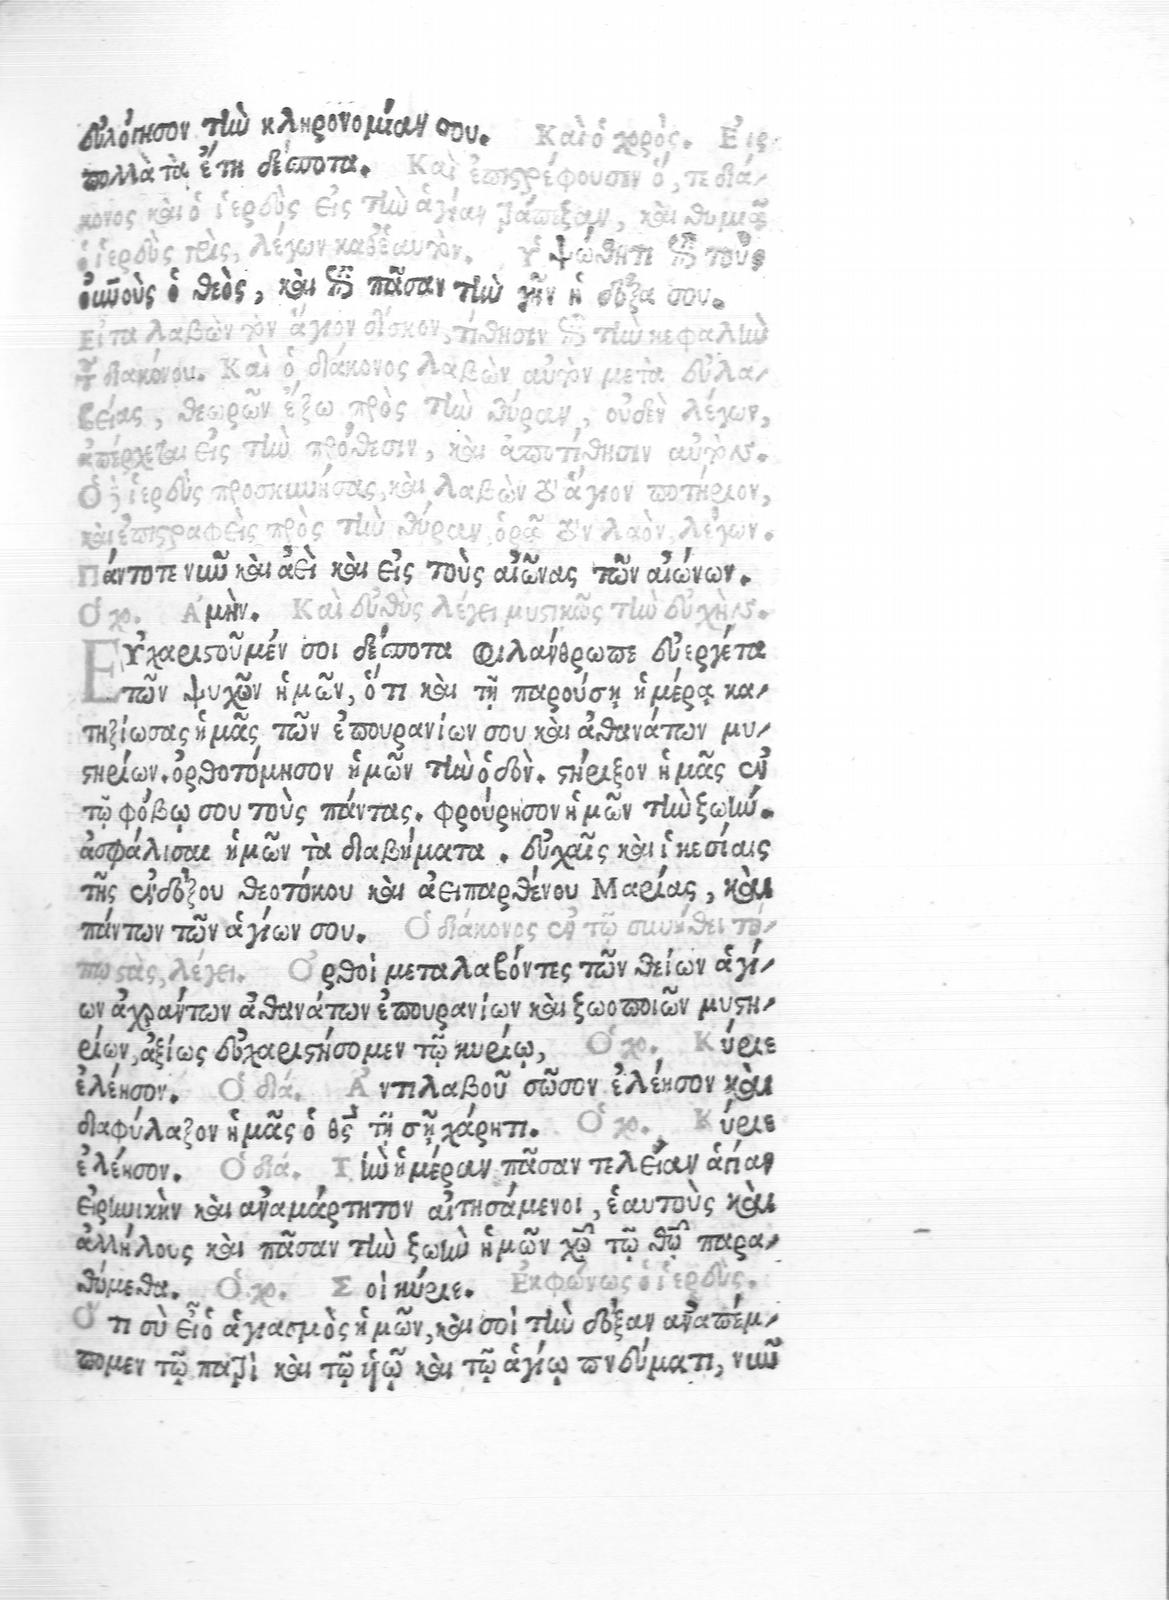 εὐλόγησον τὴν κληρονομίαν σου. Καὶ ὁ χορός. Εἰς
πολλὰ τὰ ἔτη δέσποτα. Καὶ ἐπιστρέφουσιν ὅ, τε διά-
κονος καὶ ὁ ἱερεὺς εἰς τὴν ἁγίαν τράπεζαν, καὶ θυμιᾷ
ὁ ἱερεὺς τρὶς, λέγων καθ' ἑαυτὸν. Ὑψώθητι ἐπὶ τοὺς
οὐνοὺς ὁ θεὸς, καὶ ἐπὶ πᾶσαν τὴν γῆν ἡ δόξα σου.
Εἶτα λαβὼν τὸν ἅγιον δίσκον, τίθησιν ἐπὶ τὴν κεφαλὴν
τοῦ διακόνου. Καὶ ὁ διάκονος λαβὼν αὐτὸν μετὰ εὐλα-
βείας, θεωρῶν ἔξω πρὸς τὴν θύραν, οὐδὲν λέγων,
ἀπέρχεται εἰς τὴν πρόθεσιν, καὶ ἀποτίθησιν αὐτὸν.
Ὁ δὲ ἱερεὺς προσκυνήσας, καὶ λαβὼν τὸ ἅγιον ποτήριον,
καὶ ἐπιστραφεὶς πρὸς τὴν θύραν, ὁρᾷ τὸν λαὸν, λέγων.
Πάντοτε νῦν καὶ ἀεὶ καὶ εἰς τοὺς αἰῶνας τῶν αἰώνων.
Ὁ χο. Ἀμὴν. Καὶ εὐθὺς λέγει μυστικῶς τὴν εὐχὴν.
Εὐχαριστοῦμέν σοι δέσποτα φιλάνθρωπε εὐεργέτα
τῶν ψυχῶν ἡμῶν, ὅτι καὶ τῇ παρούσῃ ἡμέρᾳ κα-
τηξίωσας ἡμᾶς τῶν ἐπουρανίων σου καὶ ἀθανάτων μυ-
στηρίων. ὀρθοτόμησον ἡμῶν τὴν ὁδὸν. στήριξον ἡμᾶς ἐν
τῷ φόβῳ σου τοὺς πάντας. φρούρησον ἡμῶν τὴν ζωήν.
ἀσφάλισαι ἡμῶν τὰ διαβήματα. εὐχαῖς καὶ ἱκεσίαις
τῆς ἐνδόξου θεοτόκου καὶ ἀειπαρθένου Μαρίας, καὶ
πάντων τῶν ἁγίων σου. Ὁ διάκονος ἐν τῷ συνήθει τό-
πῳ στὰς, λέγει. Ὀρθοὶ μεταλαβόντες τῶν θείων ἁγί-
ων ἀχράντων ἀθανάτων ἐπουρανίων καὶ ζωοποιῶν μυστη-
ρίων, ἀξίως εὐχαριστήσομεν τῷ κυρίῳ, Ὁ χο. Κύριε
ἐλέησον. Ὁ διά. Ἀντιλαβοῦ σῶσον ἐλέησον καὶ
διαφύλαξον ἡμᾶς ὁ θς τῇ σῇ χάρητι. Ὁ χο. Κύριε
ἐλέησον. Ὁ διά. Τὴν ἡμέραν πᾶσαν τελείαν ἁγίαν
εἰρηνικὴν καὶ ἀναμάρτητον αἰτησάμενοι, ἑαυτοὺς καὶ
ἀλλήλους καὶ πᾶσαν τὴν ζωὴν ἡμῶν χῷ τῷ θῷ παρα-
θώμεθα. Ὁ χο. Σοὶ κύριε. Ἐκφώνως ὁ ἱερεὺς.
Ὅτι σὺ εἶ ὁ ἁγιασμὸς ἡμῶν, καὶ σοὶ τὴν δόξαν ἀναπέμ-
πομεν τῷ πατρὶ καὶ τῷ ὑῷ καὶ τῷ ἁγίῳ πνεύματι, νῦν